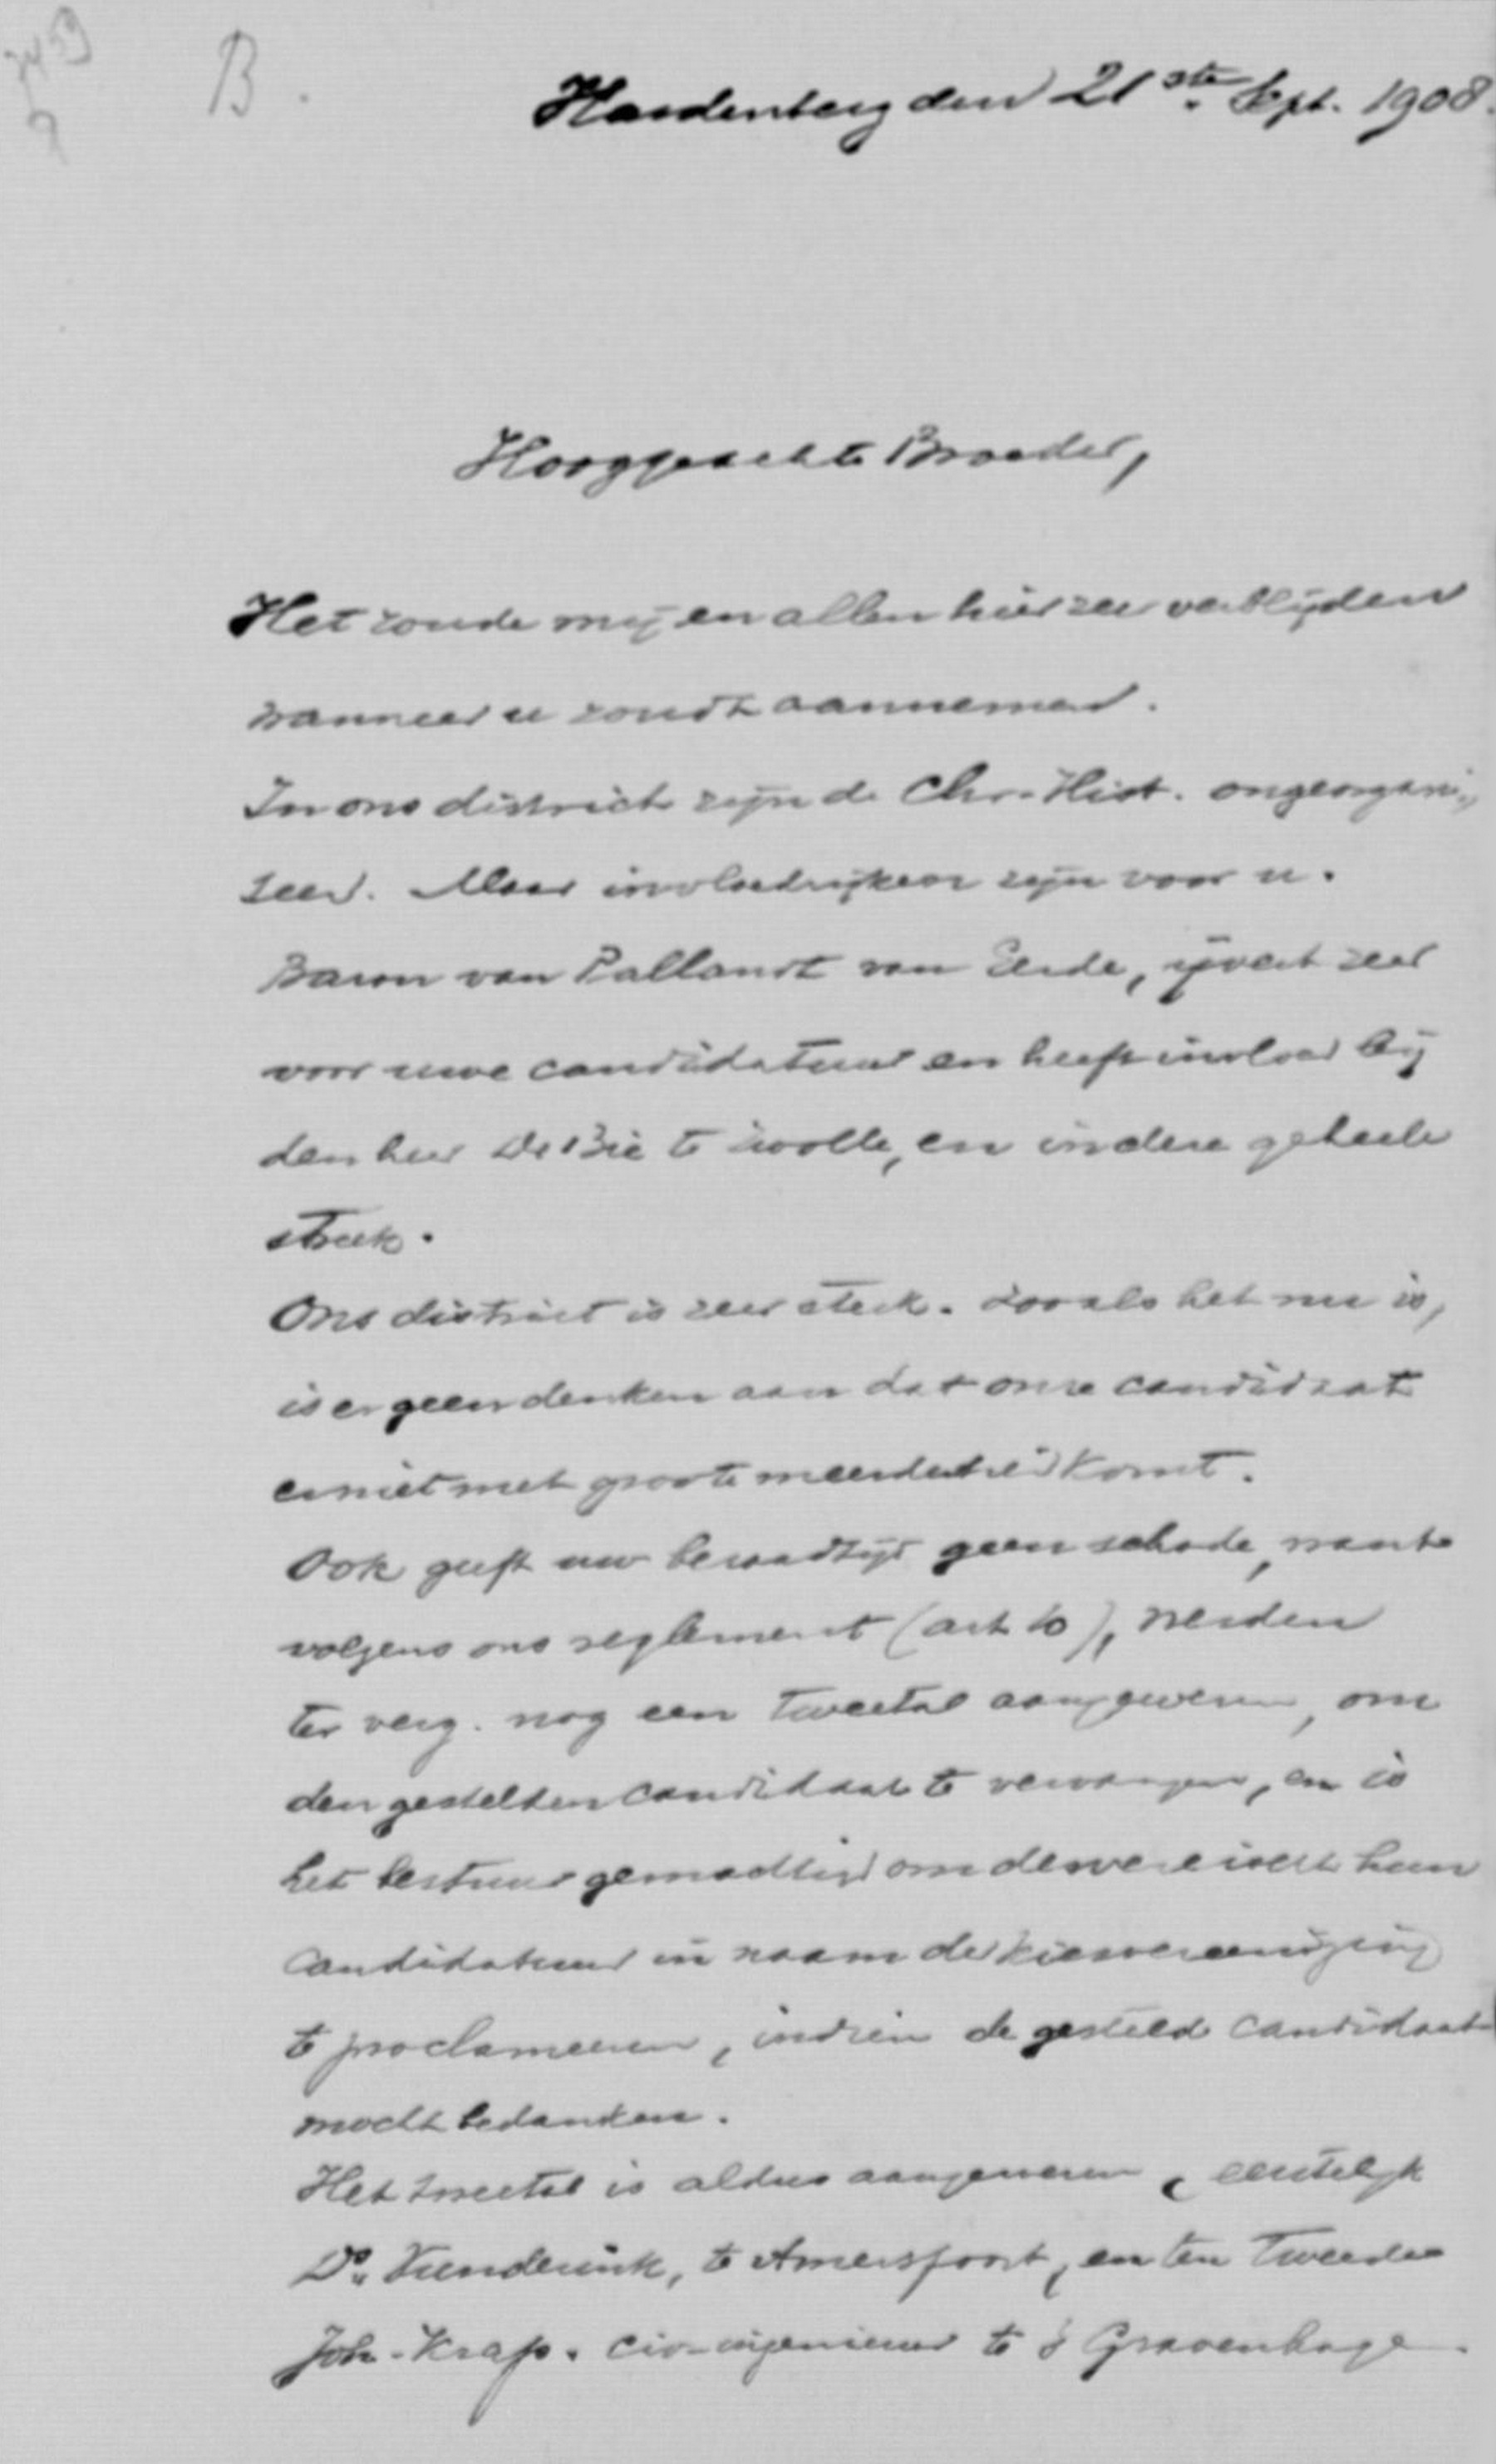 B.
Hardenberg den 21ste Sept. 1908.
Hooggeachte Broeder,
Het zoude mij en allen hier zeer verblijden
wanneer u zoudt aannemen.
In ons district zijn de Chr.-Hist. ongeorgani„
seerd. Maar invloedrijken zijn voor u.
Baron van Pallandt van Eerde, ijvert zeer
voor uwe candidatuur en heeft invloed bij
den heer De Bie te Zwolle, en in deze geheele
streek.
Ons district is zeer sterk. Zooals het nu is,
is er geen denken aan dat onze candidaat
er niet met groote meerderheid komt.
Ook geeft uw beraadtijd geen schade, want
volgens ons reglement (art 10), werden
ter verg. nog een tweetal aangewezen, om
den gestelden candidaat te vervangen, en is
het bestuur gemachtigd om dezer
candidatuur in naam der kiesvereeniging
te proclameeren, indien de gestelde candidaat
mocht bedanken.
Het tweetal is aldus aangewezen, eerstelijk
Ds. te Amersfoort, en ten tweede
Joh. Krap. civ-ingenieur te 's Gravenhage.